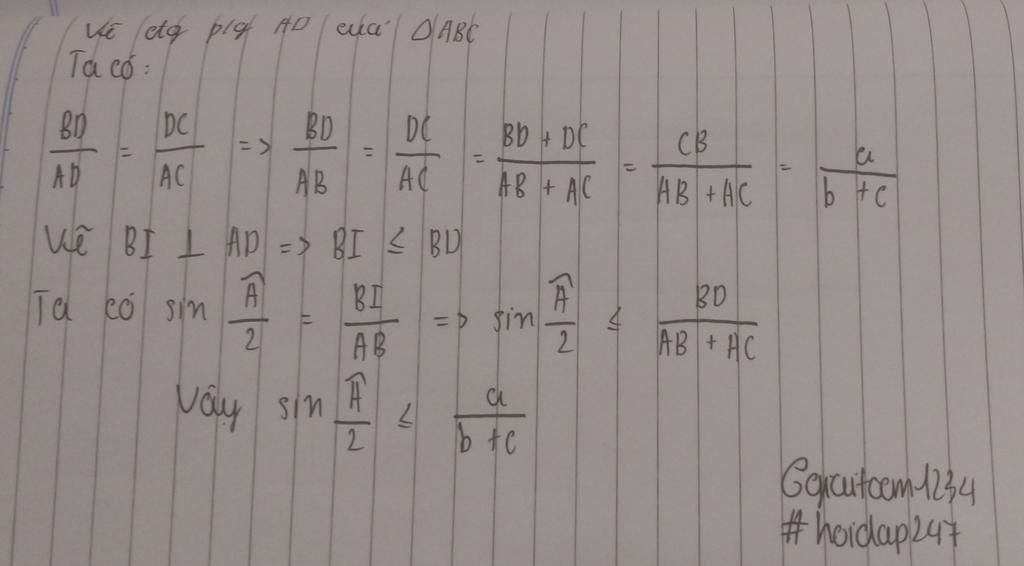 Vẽ đtg p/g AD của Δ ABC
Ta có:
BD/AD = DC/AC => BD/AB = DC/AC = BD + DC/AB + AC = CB/AB + AC = a/b + c
Vẽ BI ⊥ AD => BI ≤ BD
Ta có sin Â/2 = BI/AB => sin Â/2 ≤ BD/AB + AC
Vậy sin Â/2 ≤ a/b + c
#hoidap247